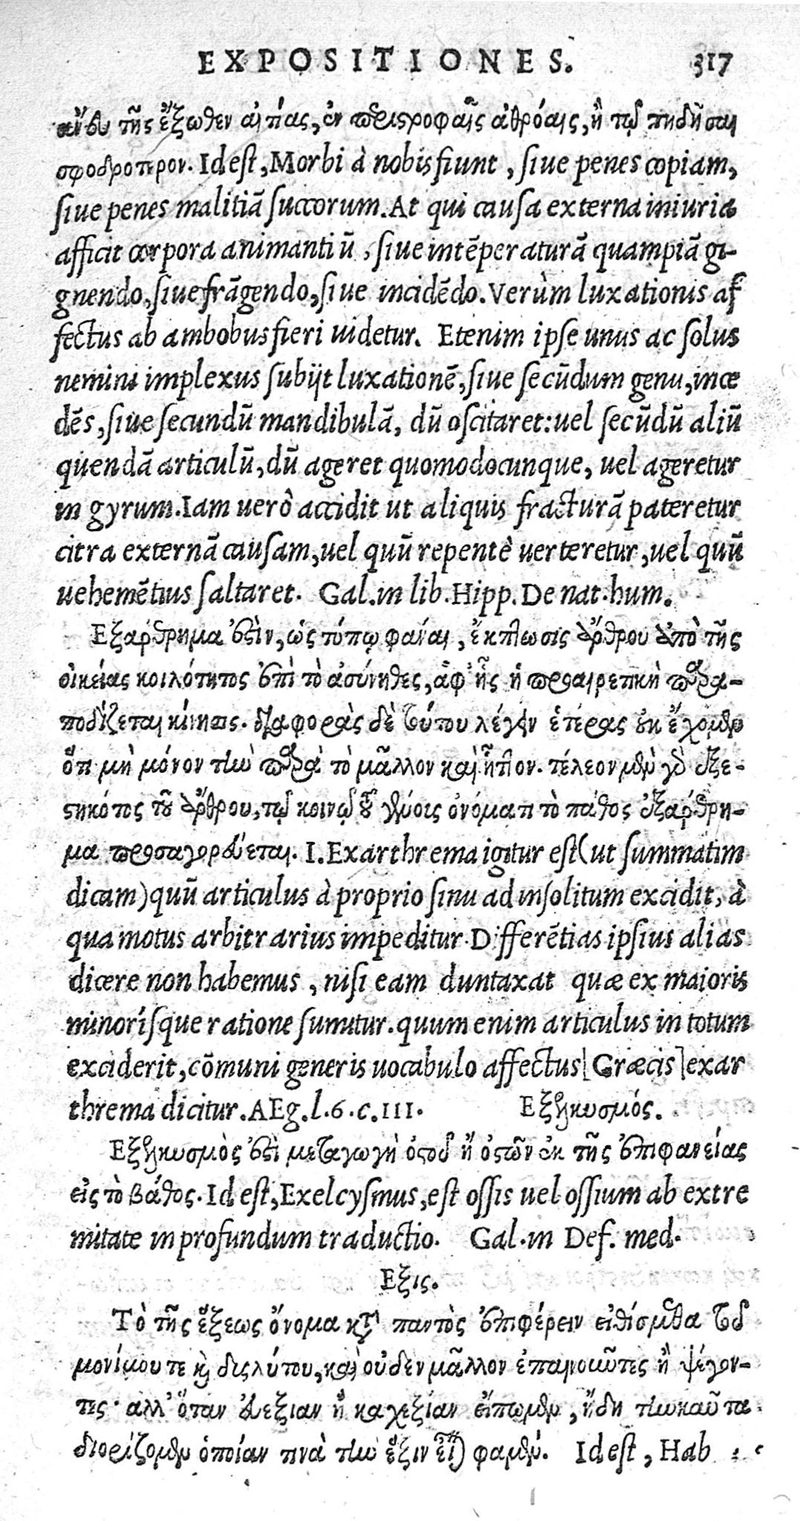 EXPOSITIONES. 317
ἄνευ τῆς ἔξωθεν αἰτίας, ἐν περιστροφαῖς ἀθρόαις, ἢ τῷ πηδῆσαι
σφοδρότερον. Id est, Morbi à nobis fiunt, siue penes copiam,
siue penes malitiā succorum. At qui causa externa iniuria
afficit corpora animantiū, siue intēperaturā quampiā gi-
gnendo, siue frāgendo, siue incidēdo. Verùm luxationis af
fectus ab ambobus fieri uidetur. Etenim ipse unus ac solus
nemini implexus subijt luxationē, siue secūdum genu, ince
dēs, siue secundū mandibulā, dū oscitaret: uel secūdū aliū
quendā articulū, dū ageret quomodocunque, uel ageretur
in gyrum. Iam uerò accidit ut aliquis fracturā pateretur
citra externā causam, uel quū repentè uerteretur, uel quū
uehemētius saltaret. Gal. in lib. Hipp. De nat. hum.
Εξάρθρημα ἐστὶν, ὡς τύπῳ φάναι, ἔκπτωσις ἄρθρου ἀπὸ τῆς
οἰκείας κοιλότητος ἐπὶ τὸ ἀσύνηθες, ἀφ' ἧς ἡ προαιρετικὴ παρα-
ποδίζεται κίνησις. διαφορὰς δὲ τούτου λέγειν ἑτέρας οὐκ ἔχομεν
ὅτι μὴ μόνον τὴν παρὰ τὸ μᾶλλον καὶ ἧττον. τέλεον μὲν γὸ ἐξε-
στηκότος τοῦ ἄρθρου, τῷ κοινῷ τοῦ γένους ὀνόματι τὸ πάθος ἐξάρθρη-
μα προσαγορεύεται. I. Exarthrema igitur est (ut summatim
dicam) quū articulus à proprio sinu ad insolitum excidit, à
qua motus arbitrarius impeditur. Differētias ipsius alias
dicere non habemus, nisi eam duntaxat quæ ex maioris
minorísque ratione sumitur. quum enim articulus in totum
exciderit, cōmuni generis uocabulo affectus [Græcis] exar
threma dicitur. AEg. l. 6. c. III. Εξελκυσμός.
Εξελκυσμὸς ἐστὶ μεταγωγὴ ὀστοῦ ἢ ὀστῶν ἐκ τῆς ἐπιφανείας
εἰς τὸ βάθος. Id est, Exelcysmus, est ossis uel ossium ab extre
mitate in profundum traductio. Gal. in Def. med.
Εξις.
Τὸ τῆς ἕξεως ὄνομα κατὰ παντὸς ἐπιφέρειν εἰθίσμεθα τοῦ
μονίμου τε καὶ δυσλύτου, καὶ οὐδὲν μᾶλλον ἐπαινοῦντες ἢ ψέγον-
τες· ἀλλ' ὅταν εὐεξίαν ἢ καχεξίαν εἴπωμεν, ἤδη τηνικαῦτα
διορίζομεν ὁποίαν τινὰ τὴν ἕξιν εἶναι φαμέν. Id est, Hab